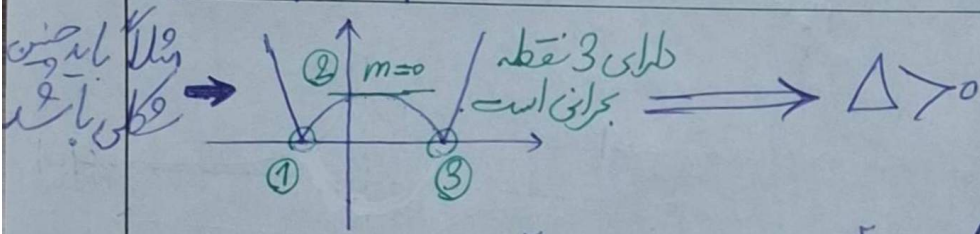 مثلاً باید چنین
شکلی باشد
② m=0
① ③
دارای 3 نقطه
بحرانی است
Δ>0